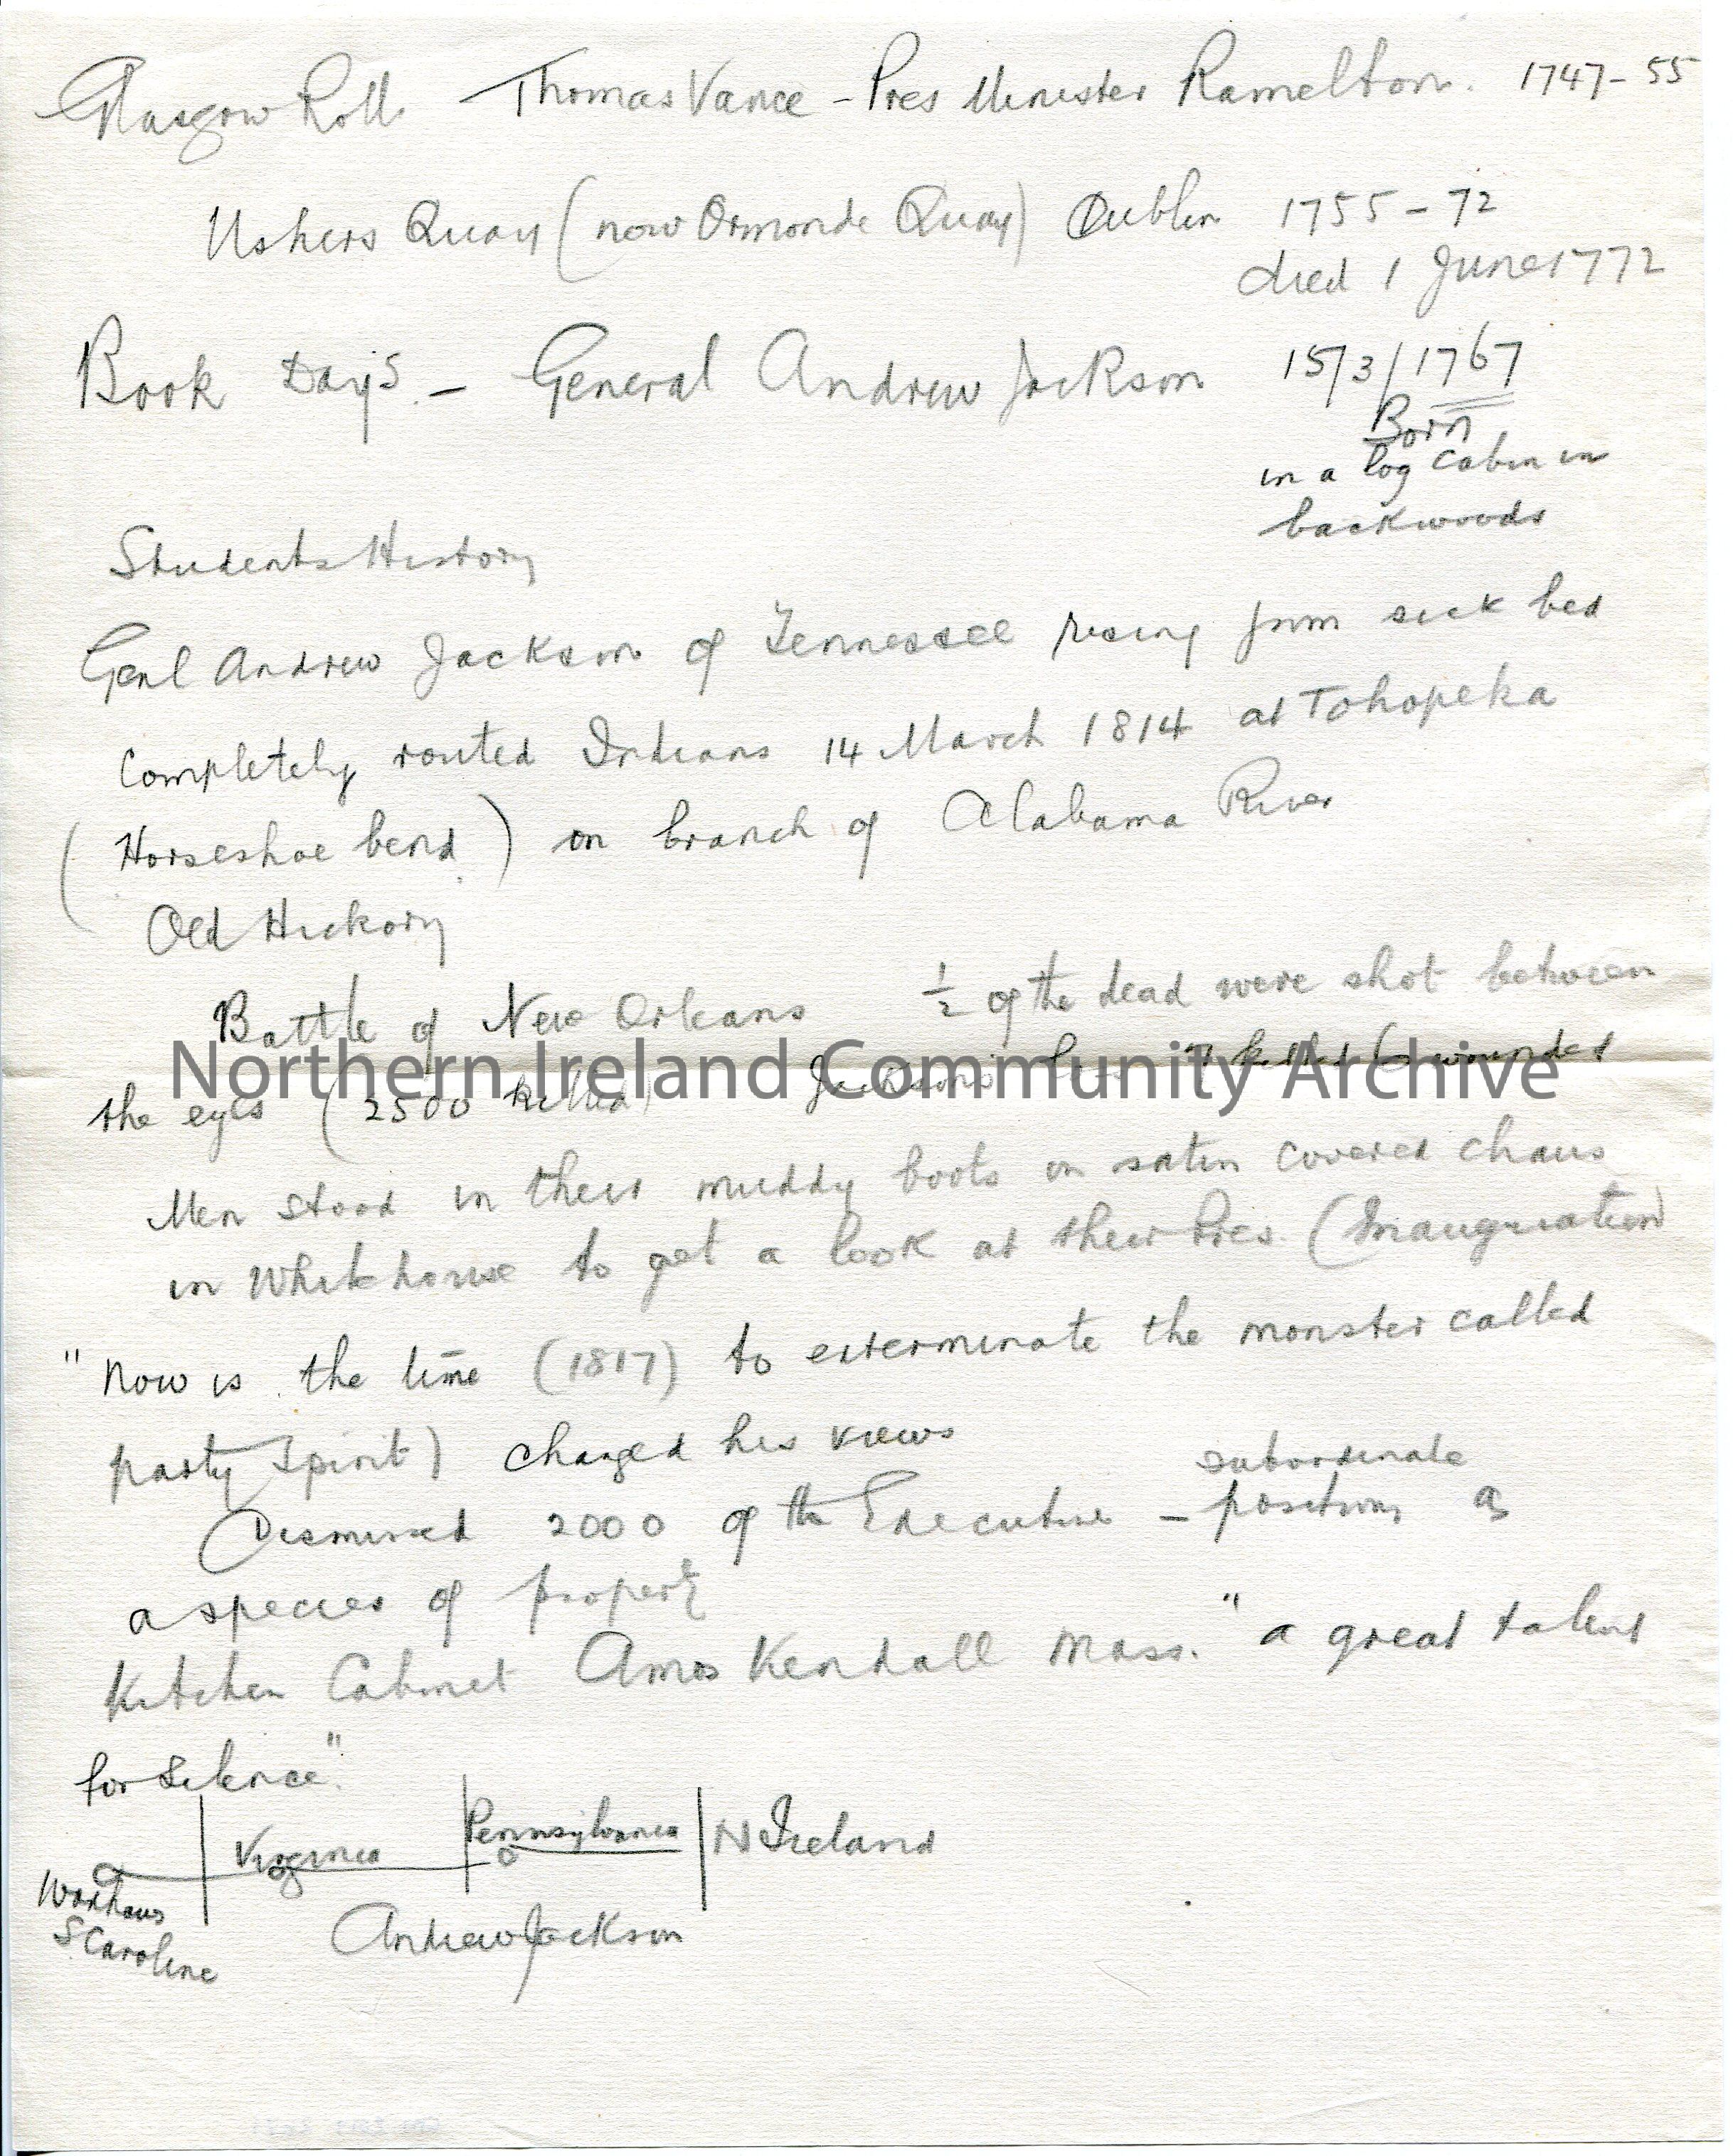 Glasgow Roll Thomas Vance - Pres Minister Ramelton. 1747-55
Ushers Quay (now Ormonde Quay) Dublin 1755-72
died 1 June 1772
Book Days. - General Andrew Jackson 15/3/1767
Born
in a log cabin in
backwoods
Students History
Genl Andrew Jackson of Tennessee rising from sick bed
completely routed Indians 14 March 1814 at Tohopeka
(Horseshoe bend) on branch of Alabama River
Old Hickory
Battle of New Orleans ½ of the dead were shot between
the eyes (2500 killed) Jacksons loss 7 killed 6 wounded
Northern Ireland Community Archive
Men stood in their muddy boots on satin covered chairs
in Whitehouse to get a look at their Pres. (Inauguration)
"Now is the time (1817) to exterminate the monster called
party spirit) changed his views
Dismissed 2000 of the Executive - subordinate positions as
a species of property
Kitchen Cabinet Amos Kendall Mass. "a great talent
for silence."
Virginia Pennsylvania N Ireland
Waxhaws
S Carolina
Andrew Jackson